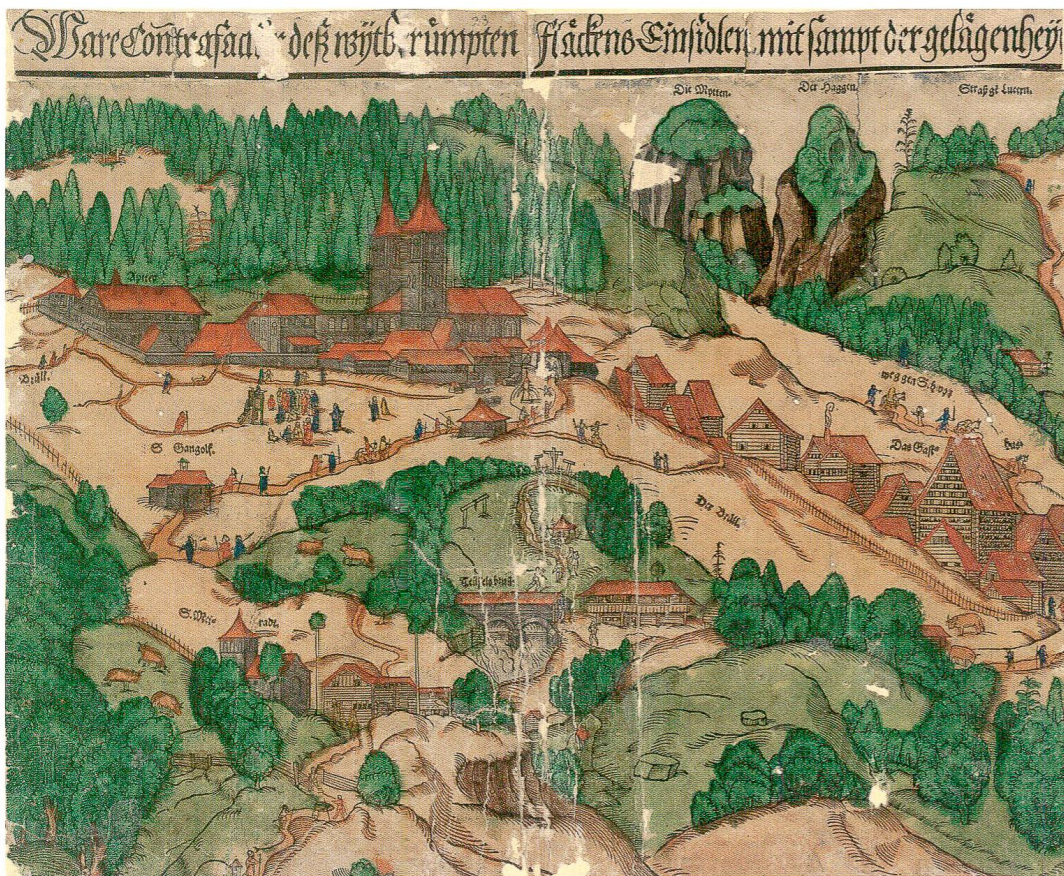 23
Ware Contrafactur deß wytberümpten Fläckens Einsidlen mit sampt der gelägenheyt
Die Mytten. Der Haggen. Straß gē Lucern.
Aptey
Brüll.
weg gen Schwyz
S Gangolf.
Das Gast hus
Der Brüll.
Teüfelsbrug
S. Mein radt.